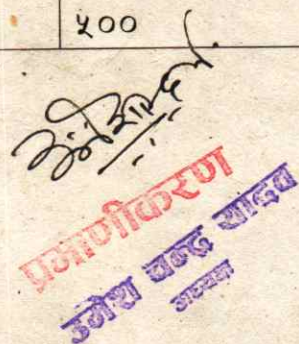 ५००
प्रमाणीकरण
उमेश चन्द्र यादव
अध्यक्ष